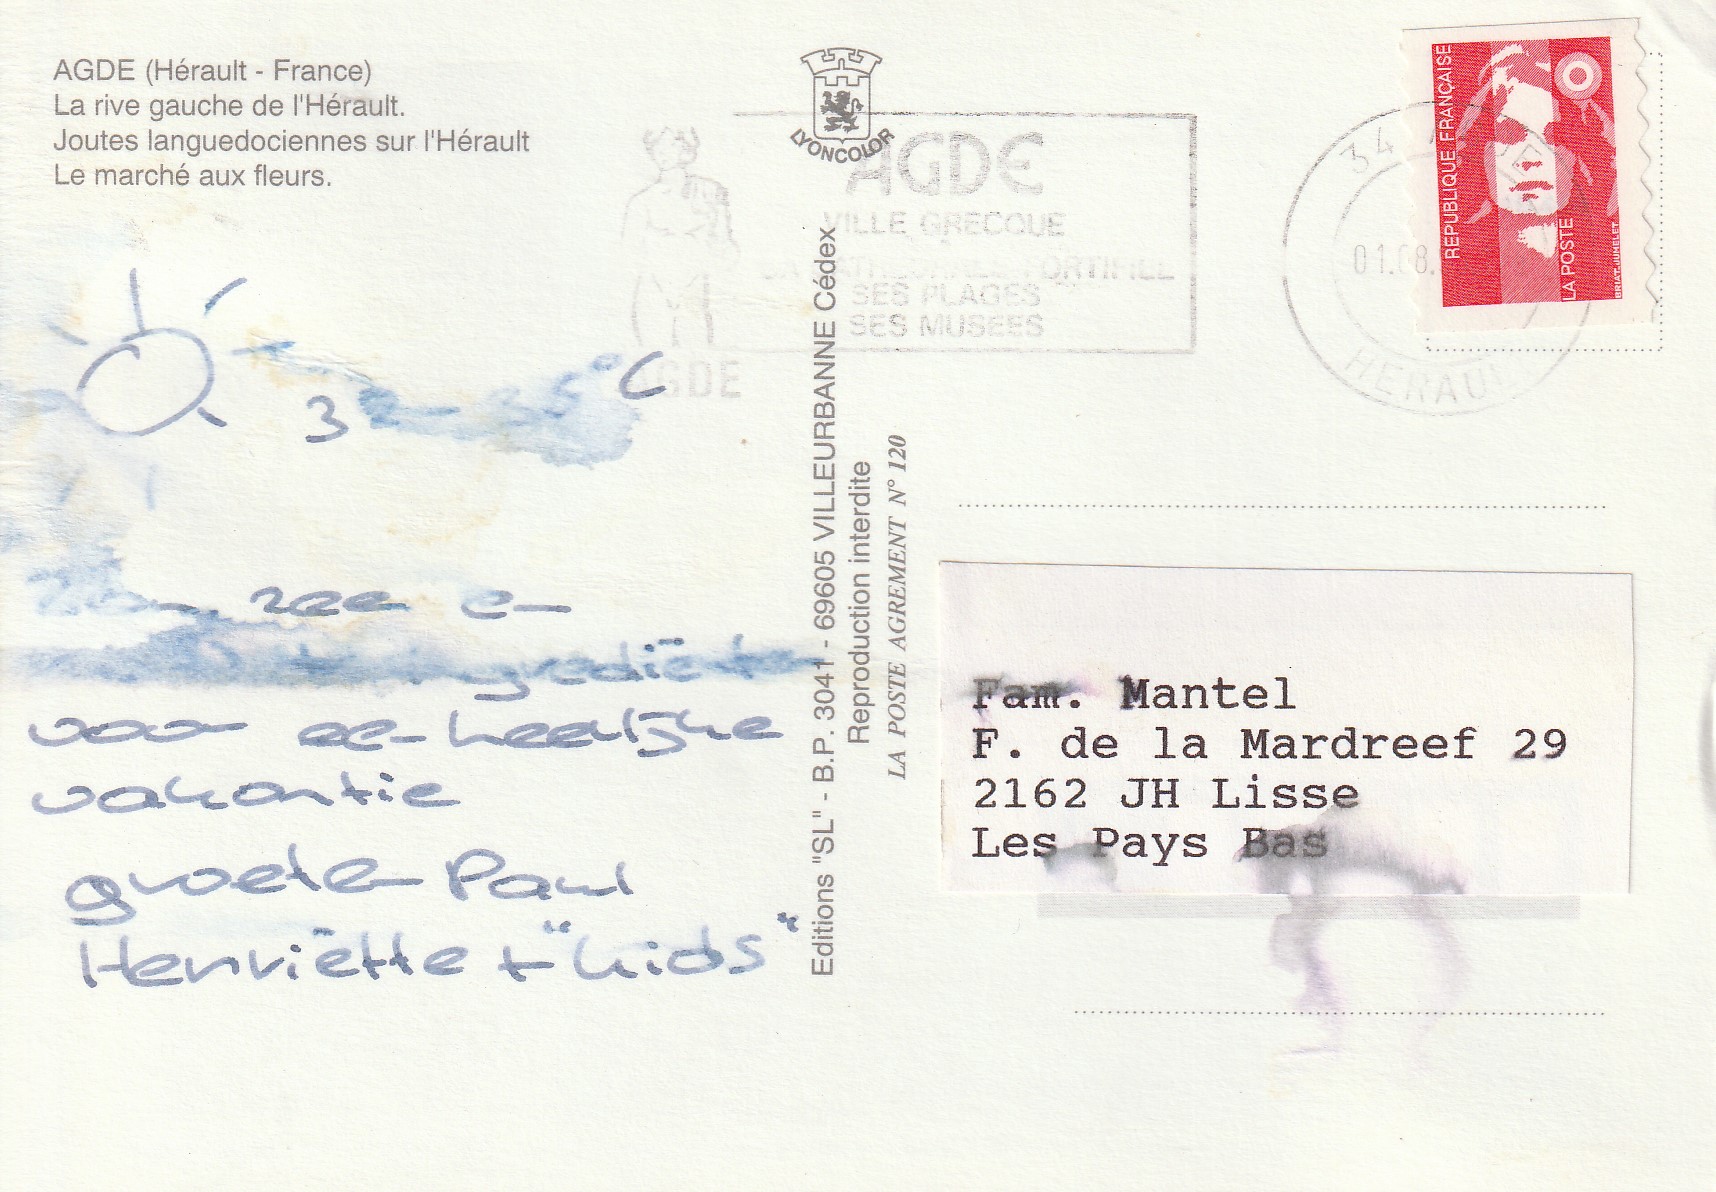 AGDE (Hérault - France)
La rive gauche de l'Hérault.
Joutes languedociennes sur l'Hérault
Le marché aux fleurs.
32-35°C
Zon, zee en
ingrediënten
voor een heerlijke
vakantie
groeten Paul
Henriëtte + "kids"
LYONCOLOR
Editions "SL" - B.P. 3041 - 69605 VILLEURBANNE Cédex
Reproduction interdite
LA POSTE AGREMENT N° 120
AGDE
VILLE GRECQUE
SA CATHEDRALE FORTIFIEE
SES PLAGES
SES MUSEES
AGDE
34
01.08.
HERAULT
REPUBLIQUE FRANÇAISE
LA POSTE
BRIAT.JUMELET
Fam. Mantel
F. de la Mardreef 29
2162 JH Lisse
Les Pays Bas